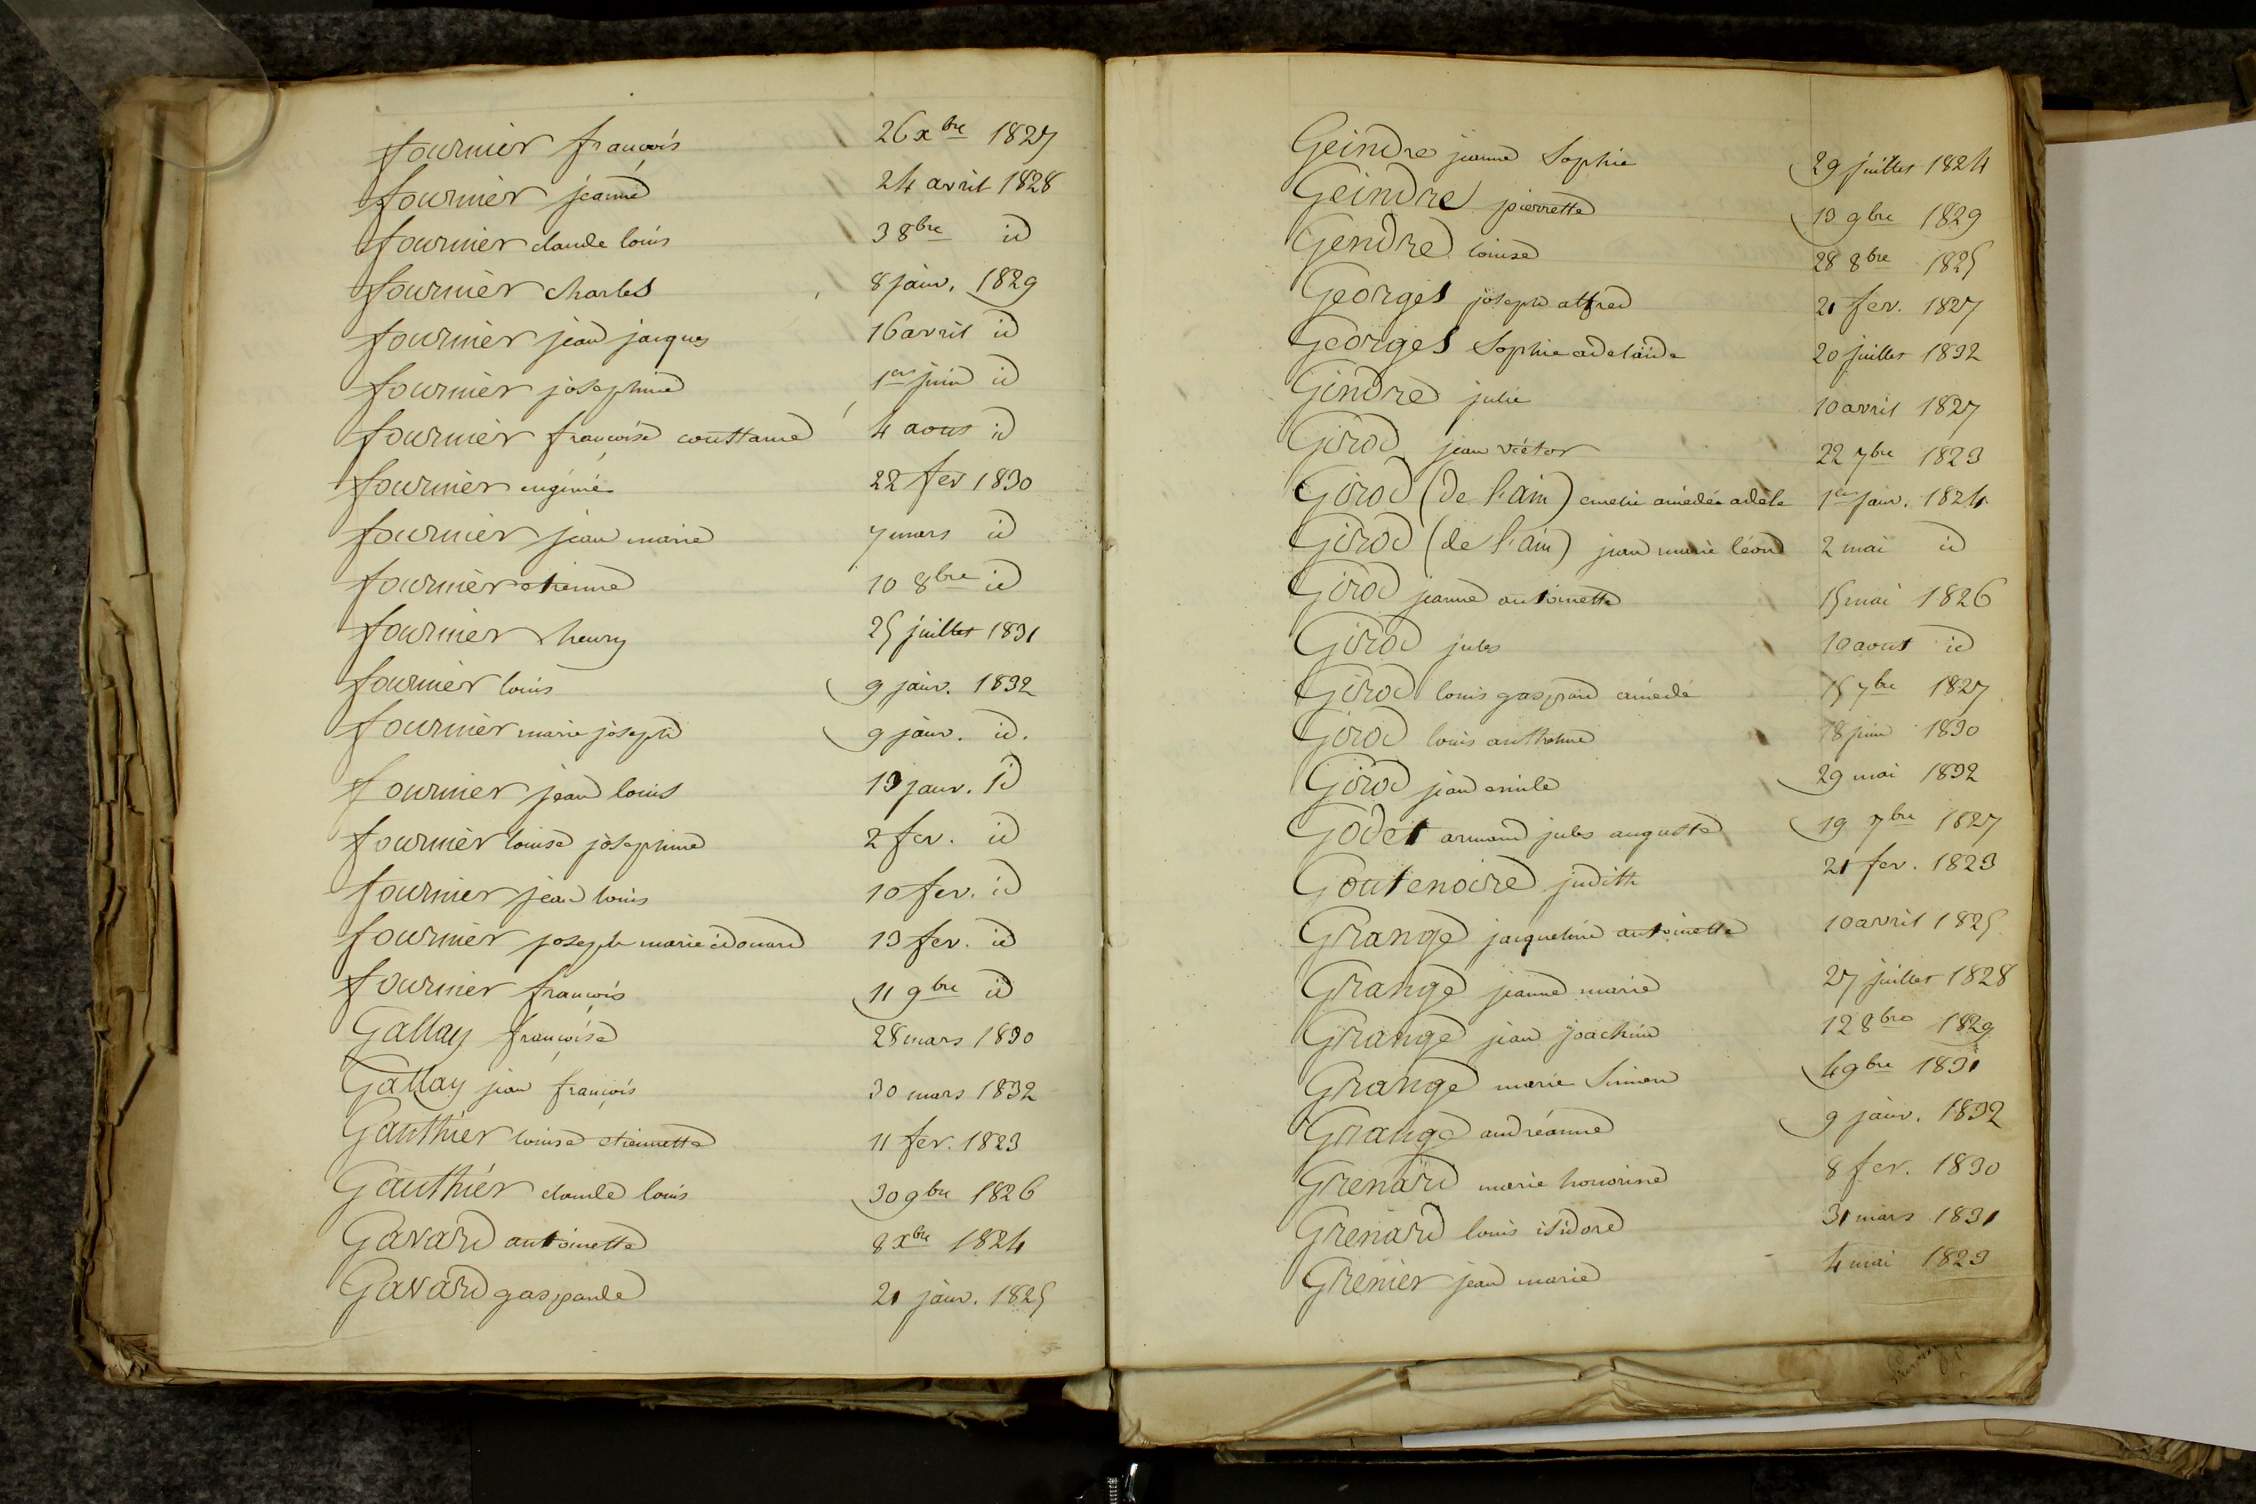 fournier françois 26 xbre 1827
fournier jeanne 24 avril 1828
fournier claude louis 3 8bre id
fournier charles 8 janv. 1829
fournier jean jacques 16 avril id
fournier josephine 1er juin id
fournier françoise constance 4 aout id
fournier eugénie 22 fev 1830
fournier jean marie 7 mars id
fournier etienne 10 8bre id
fournier henry 25 juillet 1831
fournier louis 9 janv. 1832
fournier marie joseph 9 janv. id.
fournier jean louis 13 janv. id
fournier louise josephine 2 fev. id
fournier jean louis 10 fev. id
fournier joseph marie edouard 13 fev. id
fournier françois 11 9bre id
Gallay françoise 28 mars 1830
Gallay jean françois 30 mars 1832
Gauthier louise etiennette 11 fev. 1823
Gauthier claude louis 30 9bre 1826
Gavard antoinette 8 xbre 1824
Gavard gasparde 21 janv. 1825
Geindre jeanne Sophie 29 juillet 1824
Geindre pierrette 13 9bre 1829
Gendre louise 28 8bre 1825
Georges joseph alfred 21 fev. 1827
Georges Sophie adelaïde 20 juillet 1832
Gindre julie 10 avril 1827
Girod jean victor 22 7bre 1823
Girod (de l'ain) amédée adele 1er janv. 1824
Girod (de l'ain) jean marie léon 2 mai id
Girod jeanne antoinette 15 mai 1826
Girod jules 10 aout id
Girod louis gaspard amédé 15 7bre 1827
Girod louis anthelme 18 juin 1830
Girod jean emile 29 mai 1832
Godet armand jules auguste 19 7bre 1827
Goutenoire judith 21 fev. 1823
Grange jacqueline antoinette 10 avril 1825
Grange jeanne marie 27 juillet 1828
Grange jean joachim 12 8bre 1829
Grange marie Simeon 4 9bre 1831
Grange andréanne 9 janv. 1832
Grenard marie honorine 8 fev. 1830
Grenard louis isidore 31 mars 1831
Grenier jean marie 4 mai 1823